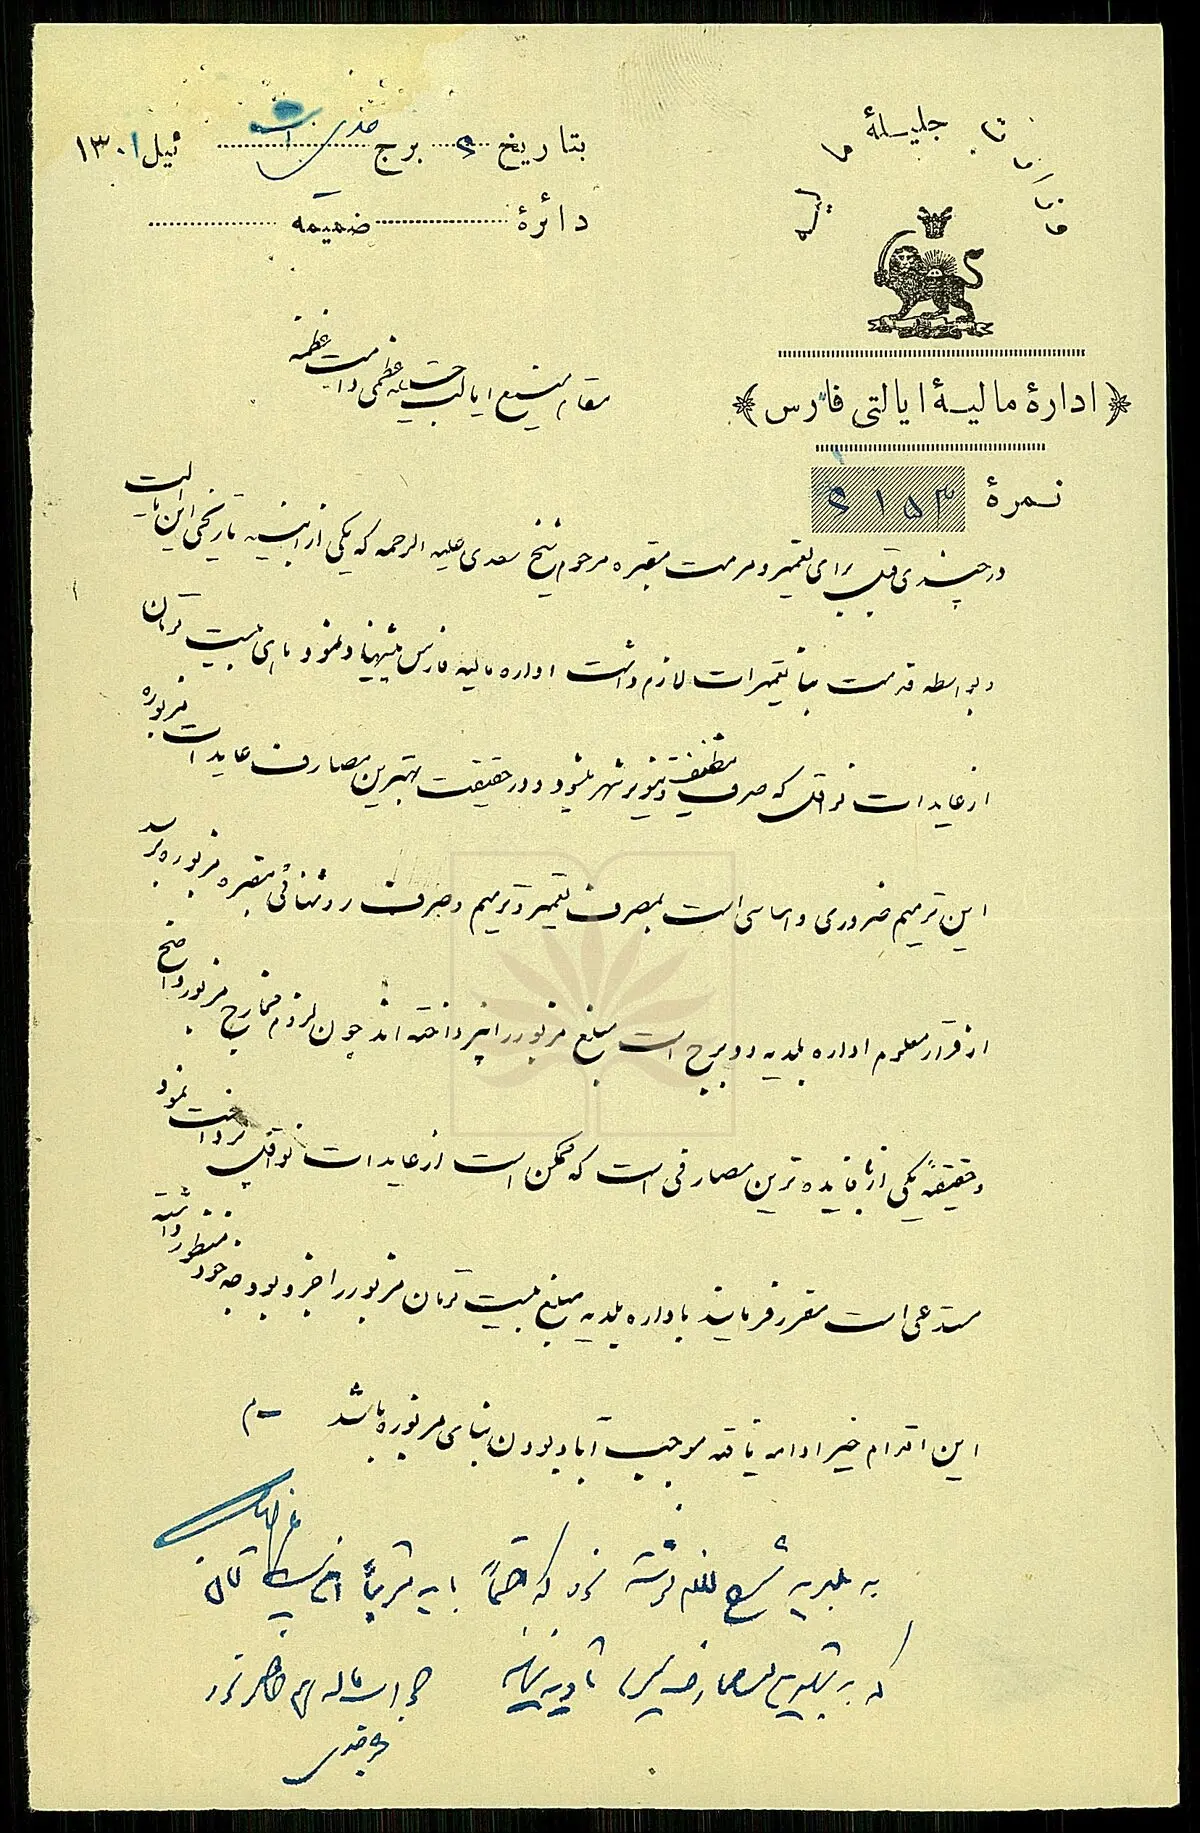 جلیلهٔ مالیه
بتاریخ ۲ برج جدی ئیل ۱۳۰۱
دائرهٔ ضمیمه
ادارهٔ مالیهٔ ایالتی فارس
نمرهٔ ۲۱۵۳
مقام منیع ایالت جلیله عظمی دامت عظمته
در چندی قبل برای تعمیر و مرمت مقبره مرحوم شیخ سعدی علیه الرحمه که یکی از ابنیه تاریخی این ایالت
و بواسطه قدمت بنا تعمیرات لازم داشت اداره مالیه فارس پیشنهاد نمود ماهی بیست تومان
از عایدات نواقل که صرف تنظیف و تنویر شهر میشود و در حقیقت بهترین مصارف عایدات مزبوره
این ترمیم ضروری و اساسی است بمصرف تعمیر و ترمیم و صرف روشنائی مقبره مزبوره برسد
از قرار معلوم اداره بلدیه دو برج است مبلغ مزبور را نپرداخته اند چون لزوم مخارج مزبور واضح
و حقیقةً یکی از با فایده ترین مصارفی است که ممکن است از عایدات نواقل پرداخت نمود
مستدعی است مقرر فرمایند باداره بلدیه مبلغ بیست تومان مزبور را جزو بودجه خود منظور داشته
این اقدام خیر ادامه یافته موجب آباد بودن بنای مزبوره باشد
به بلدیه شرح نوشته شود که حتماً باید
که به تأدیه نمایند جواب مالیه هم نوشته شود
۲ جدی